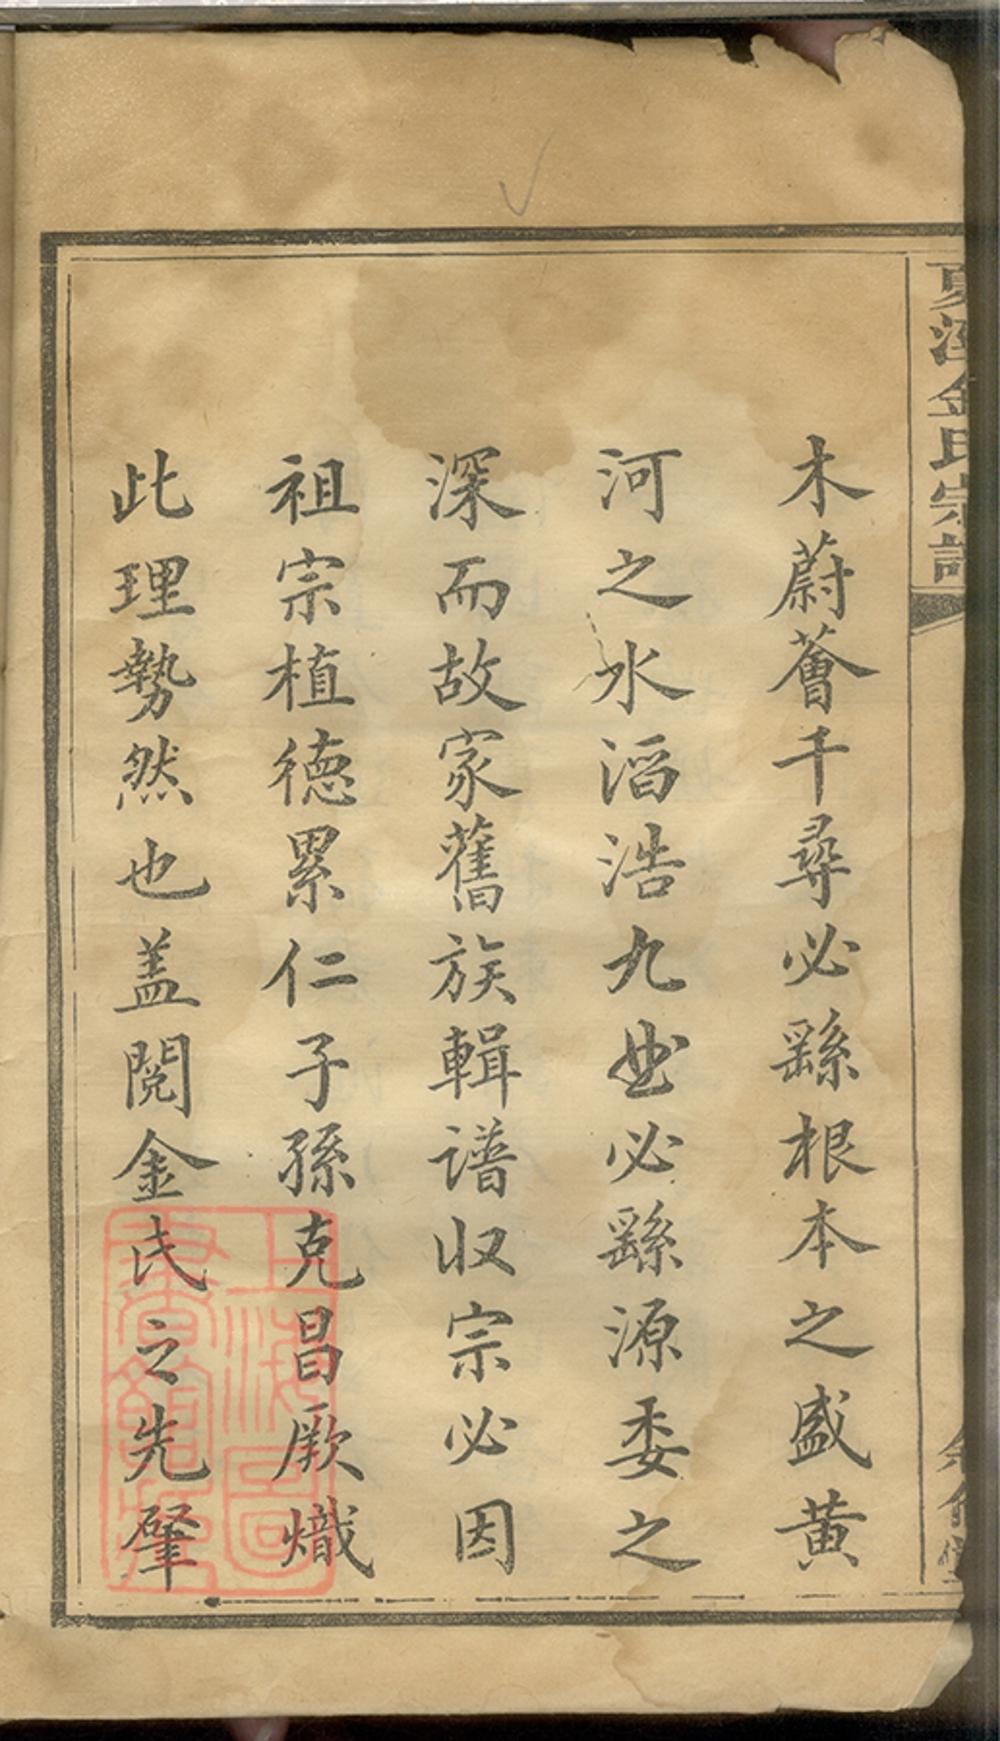 夏溪金氏宗譜
木蔚薈千尋必繇根本之盛黄
河之水滔浩九曲必繇源委之
深而故家舊族輯譜収宗必因
祖宗植德累仁子孫克昌厥熾
此理勢然也盖閱金氏之先肇
上海圖
書館藏